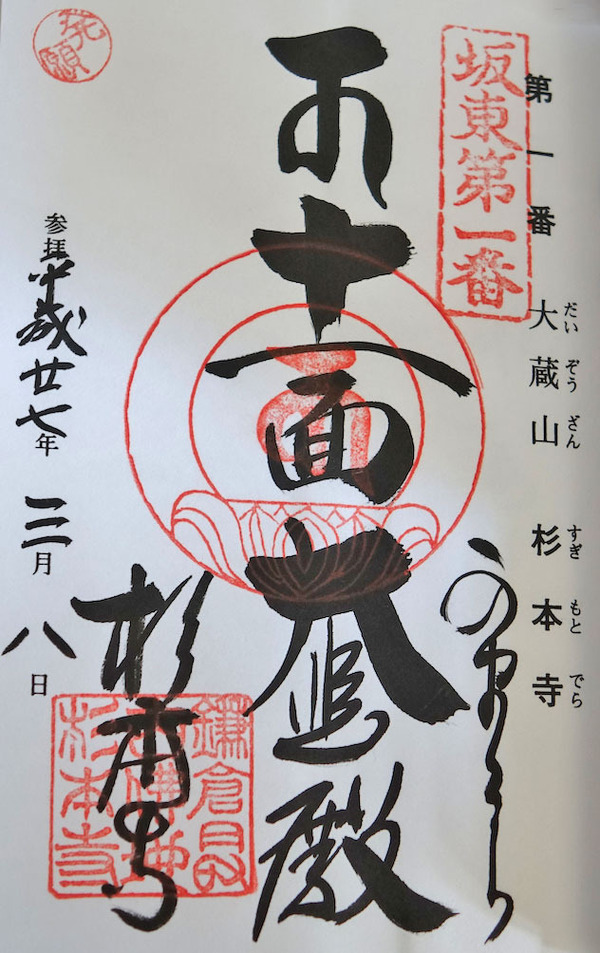 第一番 大蔵山 杉本寺
だいぞうざん すぎもとでら
坂東第一番
十一面大悲殿
杉本寺
参拝平成廿七年 三月八日
発願
鎌倉
杉本寺